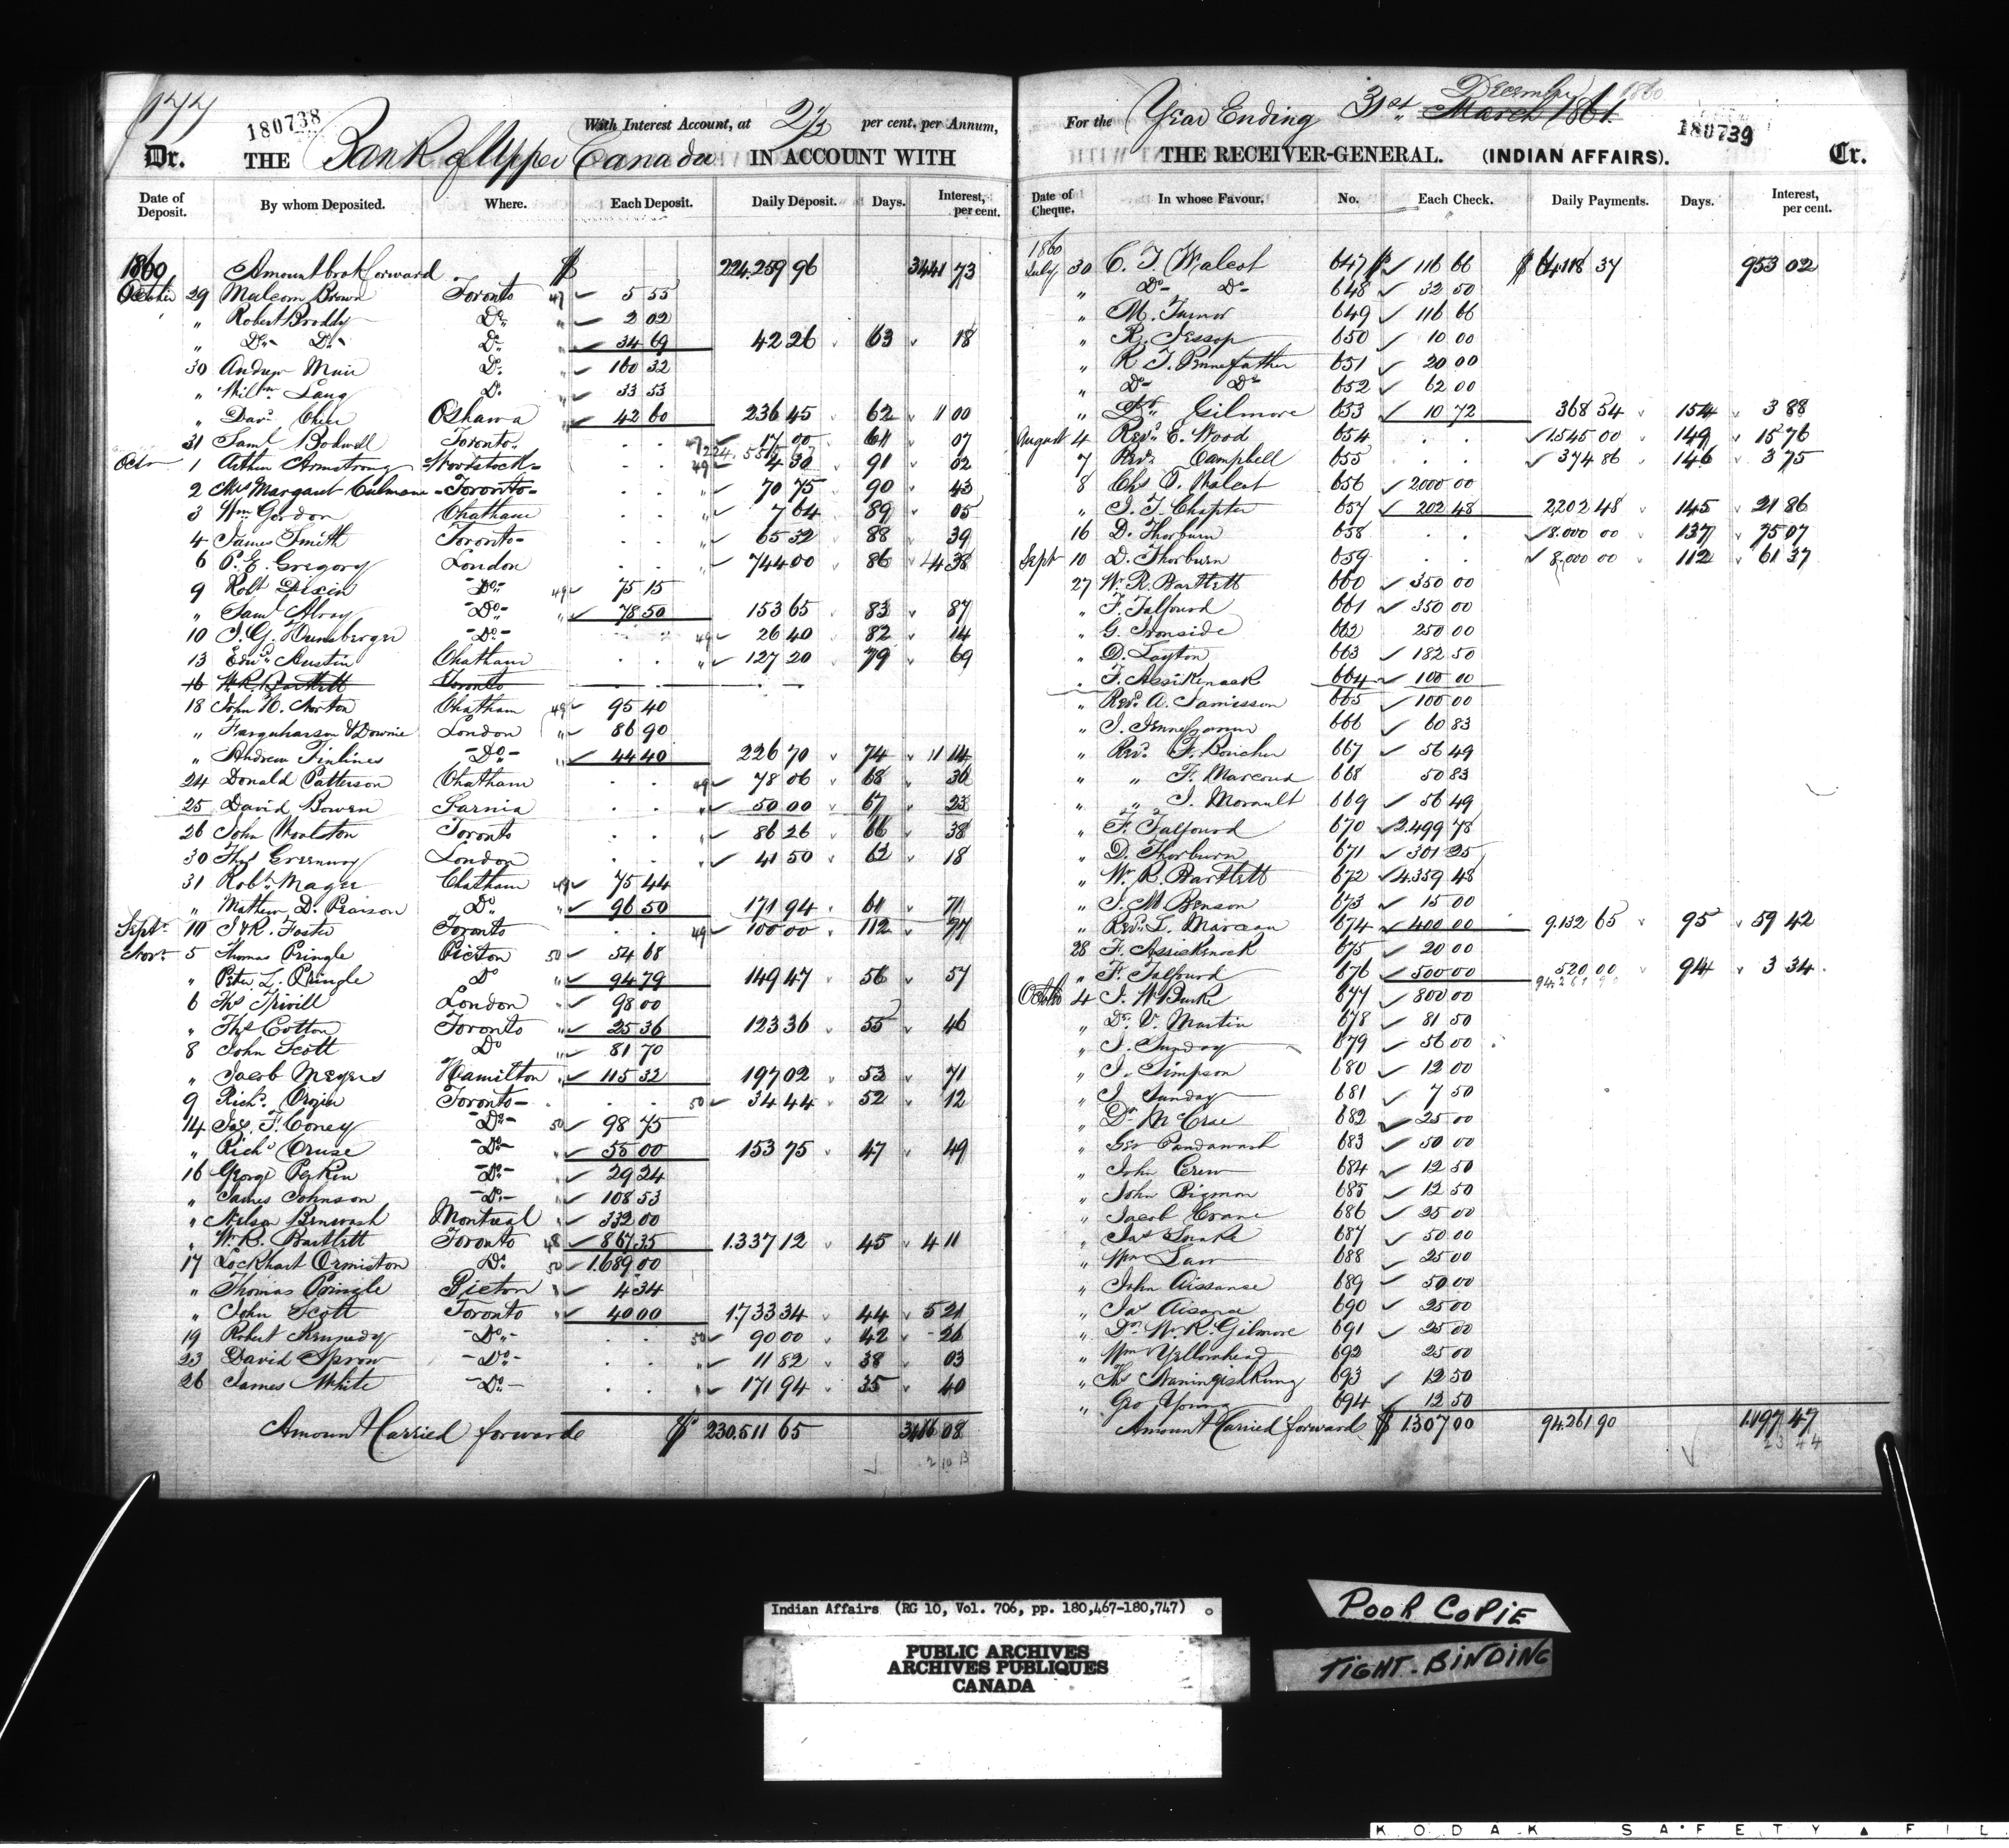 177
180738
With Interest Account, at 2/3 per cent, per Annum,
Dr. THE Bank of Upper Canada IN ACCOUNT WITH
Date of Deposit. By whom Deposited. Where. Each Deposit. Daily Deposit. Days. Interest, per cent.
1860 Amount brot forward $ 224.259 96 3441 73
October 29 Malcom Brown Toronto 47 5 55
" Robert Broddy Do " 2 02
" Do Do Do " 34 69 42 26 63 18
30 Andrew Muir Do " 160 32
" Willm Lang Do " 33 53
" Davd Oshawa " 42 60 236 45 62 1 00
31 Saml Bodwell Toronto 47 17 00 61 07
Octr 1 Arthur Armstrong Woodstock 49 4 30 91 02
2 Mrs Margaret Culmane Toronto " 70 75 90 43
3 Wm Gordon Chatham " 7 64 89 05
4 James Smith Toronto " 65 32 88 39
6 P. E. Gregory London " 744 00 86 4 38
9 Robt Dixon Do 49 75 15
" Saml Do " 78 50 153 65 83 87
10 J. G. Hunsberger Do 49 26 40 82 14
13 Edwd Austin Chatham " 127 20 79 69
16 W. R. Bartlett Toronto
18 John W. Norton Chatham 49 95 40
" Farquharson & Downie London " 86 90
" Andrew Tinlines Do " 44 40 226 70 74 1 14
24 Donald Patterson Chatham 49 78 06 68 36
25 David Bowen Sarnia " 50 00 67 23
26 John Woolston Toronto " 86 26 66 38
30 Thos Greenway London " 41 50 62 18
31 Robt Mager Chatham 49 75 44
" Mathew D. Pearson Do " 96 50 171 94 61 71
Septr 10 J & R. Foster Toronto 49 100 00 112 77
Novr 5 Thomas Pringle Picton 50 54 68
" Peter L. Pringle Do " 94 79 149 47 56 57
6 Thos Trivill London " 98 00
" Thos Cotton Toronto " 25 36 123 36 55 46
8 John Scott Do " 81 70
" Jacob Meyers Hamilton " 115 32 197 02 53 71
9 Richd Toronto 50 34 44 52 12
14 Jas F. Coney Do 50 98 75
" Richd Cruse Do " 55 00 153 75 47 49
16 George Perkin Do " 29 24
" James Johnson Do " 108 53
" Nelson Montreal " 332 00
" W. R. Bartlett Toronto 48 867 35 1.337 12 45 4 11
17 Lockhart Ormiston Do 50 1.689 00
" Thomas Pringle Picton " 4 34
" John Scott Toronto " 40 00 1.733 34 44 5 21
19 Robert Kennedy Do 50 90 00 42 26
23 David Sprow Do " 11 82 38 03
26 James White Do " 171 94 35 40
Amount Carried forward $ 230.511 65 08
For the Year Ending 31st March 1861 December 1860
180739
THE RECEIVER-GENERAL. (INDIAN AFFAIRS). Cr.
Date of Cheque. In whose Favour. No. Each Check. Daily Payments. Days. Interest, per cent.
1860
July 30 C. T. Walcot 647 $ 116 66 $ 37 953 02
" Do Do 648 32 50
" M. Turnor 649 116 66
" R. Jessop 650 10 00
" R T. Pennefather 651 20 00
" Do Do 652 62 00
" Dr Gilmore 653 10 72 368 54 154 3 88
August 4 Revd E. Wood 654 1545 00 149 15 76
7 Revd Campbell 655 374 86 146 3 75
8 Chs T. Walcot 656 2.000 00
" J. T. Chapter 657 202 48 2202 48 145 21 86
16 D. Thorburn 658 8.000 00 137 75 07
Sept 10 D. Thorburn 659 8.000 00 112 61 37
27 W. R. Bartlett 660 350 00
" F. Talfourd 661 350 00
" G. Ironside 662 250 00
" D. Layton 663 182 50
" F. Assikenack 664 100 00
" Revd A. Jamisson 665 100 00
" J. 666 60 83
" Revd F. Boucher 667 56 49
" " F. Marcoux 668 50 83
" " J. Morault 669 56 49
" F. Talfourd 670 2.499 78
" D. Thorburn 671 301 25
" W. R. Bartlett 672 4.359 48
" J. M Benson 673 15 00
" Revd L. Marceau 674 400 00 9.132 65 95 59 42
28 F. Assickenack 675 20 00
" F. Talfourd 676 500 00 520 00 94 3 34
94.261 90
October 4 J. W Burke 677 800 00
" Dr V. Martin 678 81 50
" J. Sunday 679 56 00
" J. Simpson 680 12 00
" J Sunday 681 7 50
" Dr McCrae 682 25 00
" Geo Pandawash 683 50 00
" John Crew 684 12 50
" John Bigmon 685 12 50
" Jacob Crane 686 25 00
" Jas Snake 687 50 00
" Wm Law 688 25 00
" John Aissance 689 50 00
" Jas Aisance 690 25 00
" Dr W. R. Gilmore 691 25 00
" Wm Yellowhead 692 25 00
" Thos Naningishkung 693 12 50
" Geo Young 694 12 50
Amount Carried forward $ 1.307 00 94.261 90 1.197 47
Indian Affairs (RG 10, Vol. 706, pp. 180,467-180,747)
PUBLIC ARCHIVES
ARCHIVES PUBLIQUES
CANADA
POOR COPIE
TIGHT-BINDING
KODAK SAFETY FIL